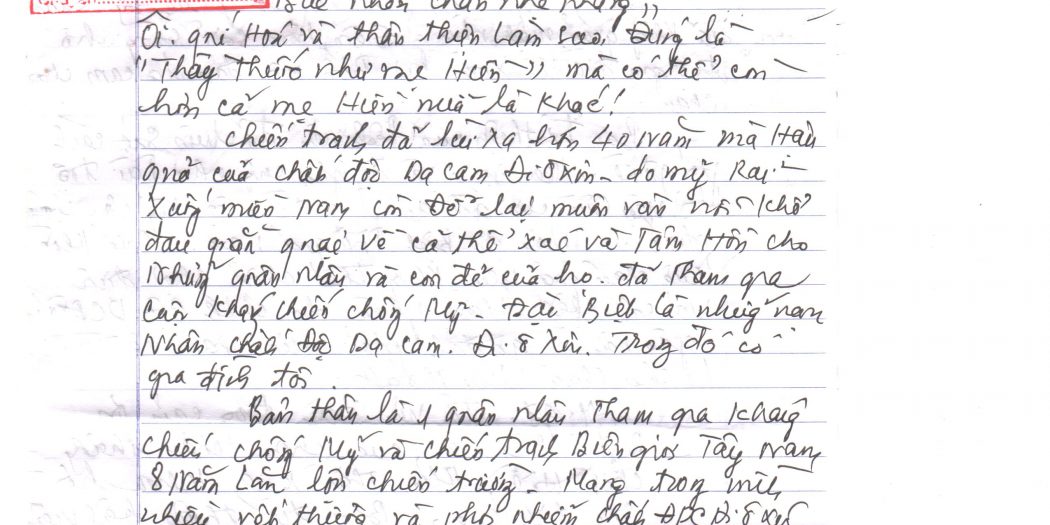 Bác nhon chân nhẹ nhàng"
Ôi. quí Hoá và thân thiện Làm sao! Đúng là
"Thầy thuốc như mẹ Hiền" mà có thể còn
hơn cả mẹ Hiền nữa là khác!
Chiến tranh đã lùi xa hơn 40 năm mà Hậu
quả của chất độc Da cam Đi.ôxin - do mỹ Rai
Xuống miền Nam còn Để lại muôn vàn nỗi khổ
đau quằn quại về cả thể xác và Tâm Hồn cho
Những quân nhân và con đẻ của họ. đã tham gia
cuộc kháng chiến chống Mỹ - Đặc Biệt là những nạn
Nhân chất Độc Da cam. Đi.ôxin. Trong đó có
gia đình tôi.
Bản thân là 1 quân nhân Tham gia kháng
chiến chống Mỹ và chiến tranh Biên giới Tây Nam
8 năm Lăn lộn chiến trường - Mang trong mình
nhiều vết thương và phơi nhiễm chất ĐDC Đi ôxin